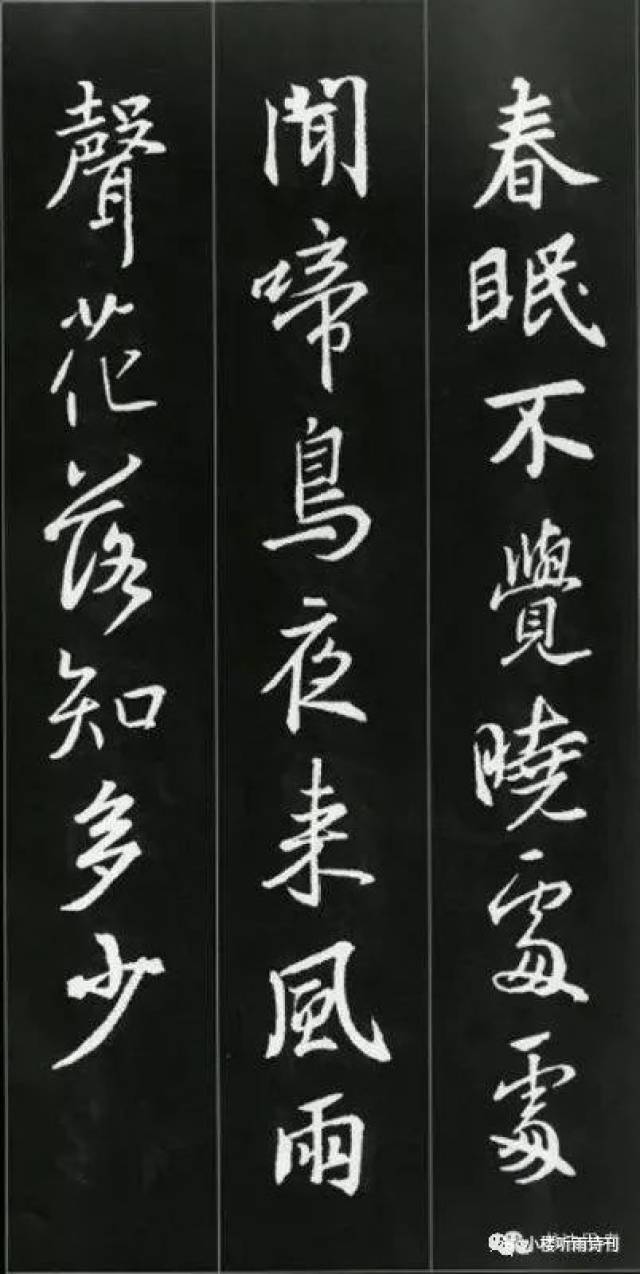 春眠不覺曉處處
聞啼鳥夜来風雨
聲花落知多少
小楼听雨诗刊